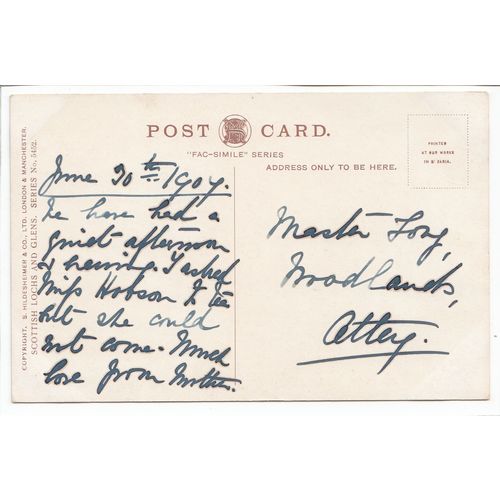 COPYRIGHT, S. HILDESHEIMER & CO., LTD. LONDON & MANCHESTER.
SCOTTISH LOCHS AND GLENS. SERIES No. 5452.
POST CARD.
"FAC-SIMILE" SERIES
ADDRESS ONLY TO BE HERE.
PRINTED
AT OUR WORKS
IN
June 20th 1904.
We have had a
quiet afternoon
& evening. I asked
Miss Hobson to tea
but she could
not come. Much
love from Mother.
Master Long,
Woodlands,
Ottery.